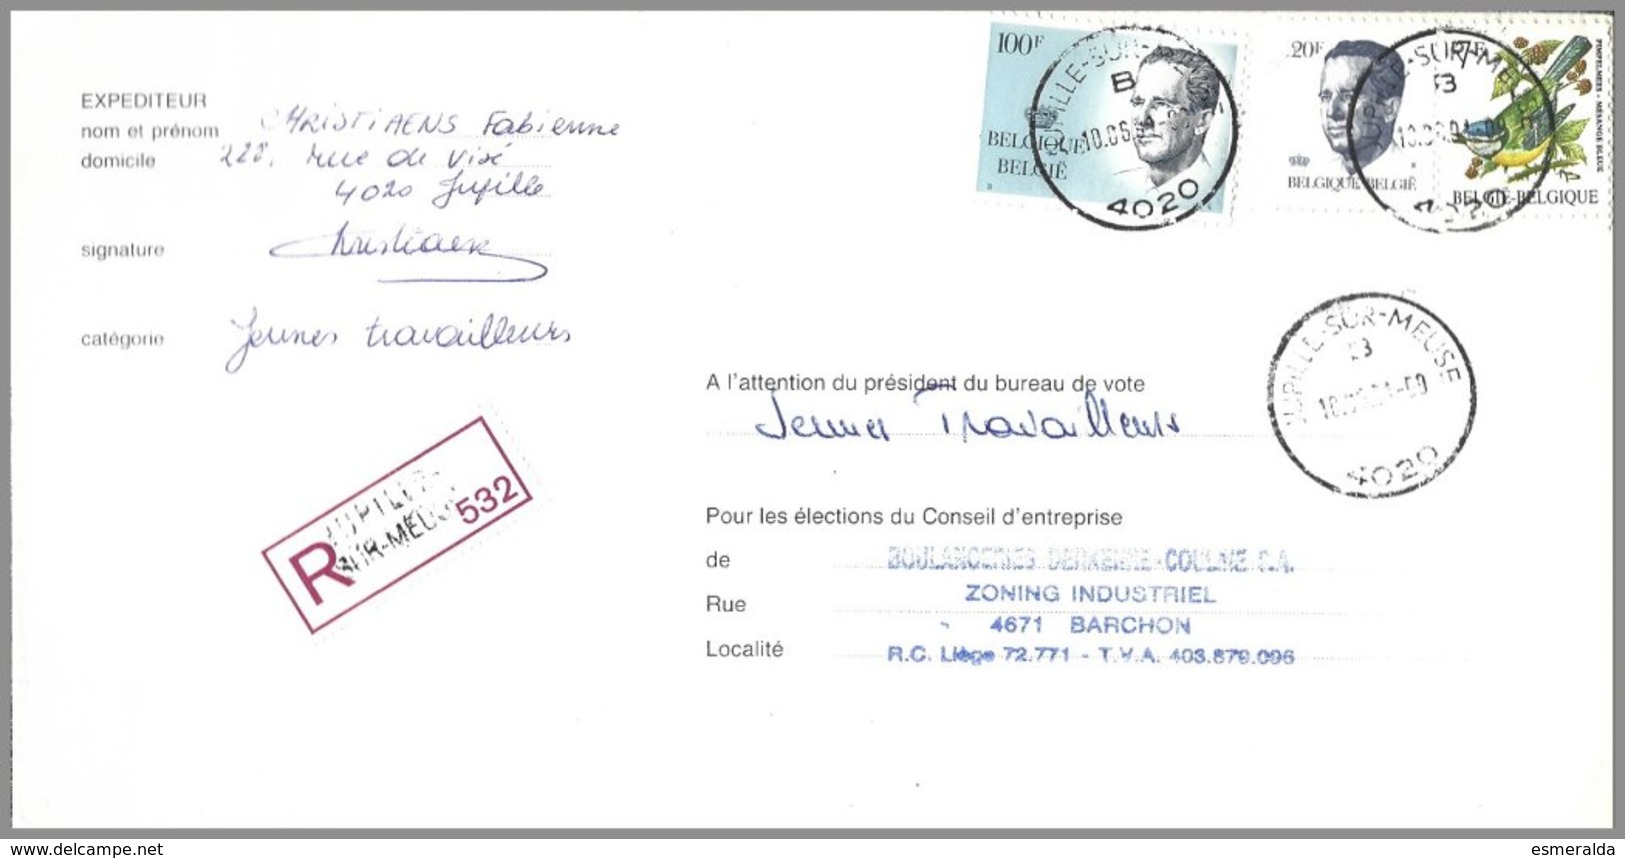 100F
BELGIQUE
BELGIË
20F
BELGIQUE BELGIË
7F
PIMPELMEES - MESANGE BLEUE
BELGIË-BELGIQUE
JUPILLE-SUR-MEUSE
B
4020
EXPEDITEUR
nom et prénom CHRISTIAENS Fabienne
domicile 228, rue de Visé
4020 Jupille
signature Christiaens
catégorie Jeunes travailleurs
JUPILLE-SUR-MEUSE
4020
A l'attention du président du bureau de vote
Jeunes Travailleurs
R
JUPILLE-
SUR-MEUSE
532
Pour les élections du Conseil d'entreprise
de BOULANGERIES DERKENNE-COULINE S.A.
Rue ZONING INDUSTRIEL
Localité 4671 BARCHON
R.C. Liège 72.771 - T.V.A. 403.879.096
www.delcampe.net
esmeralda